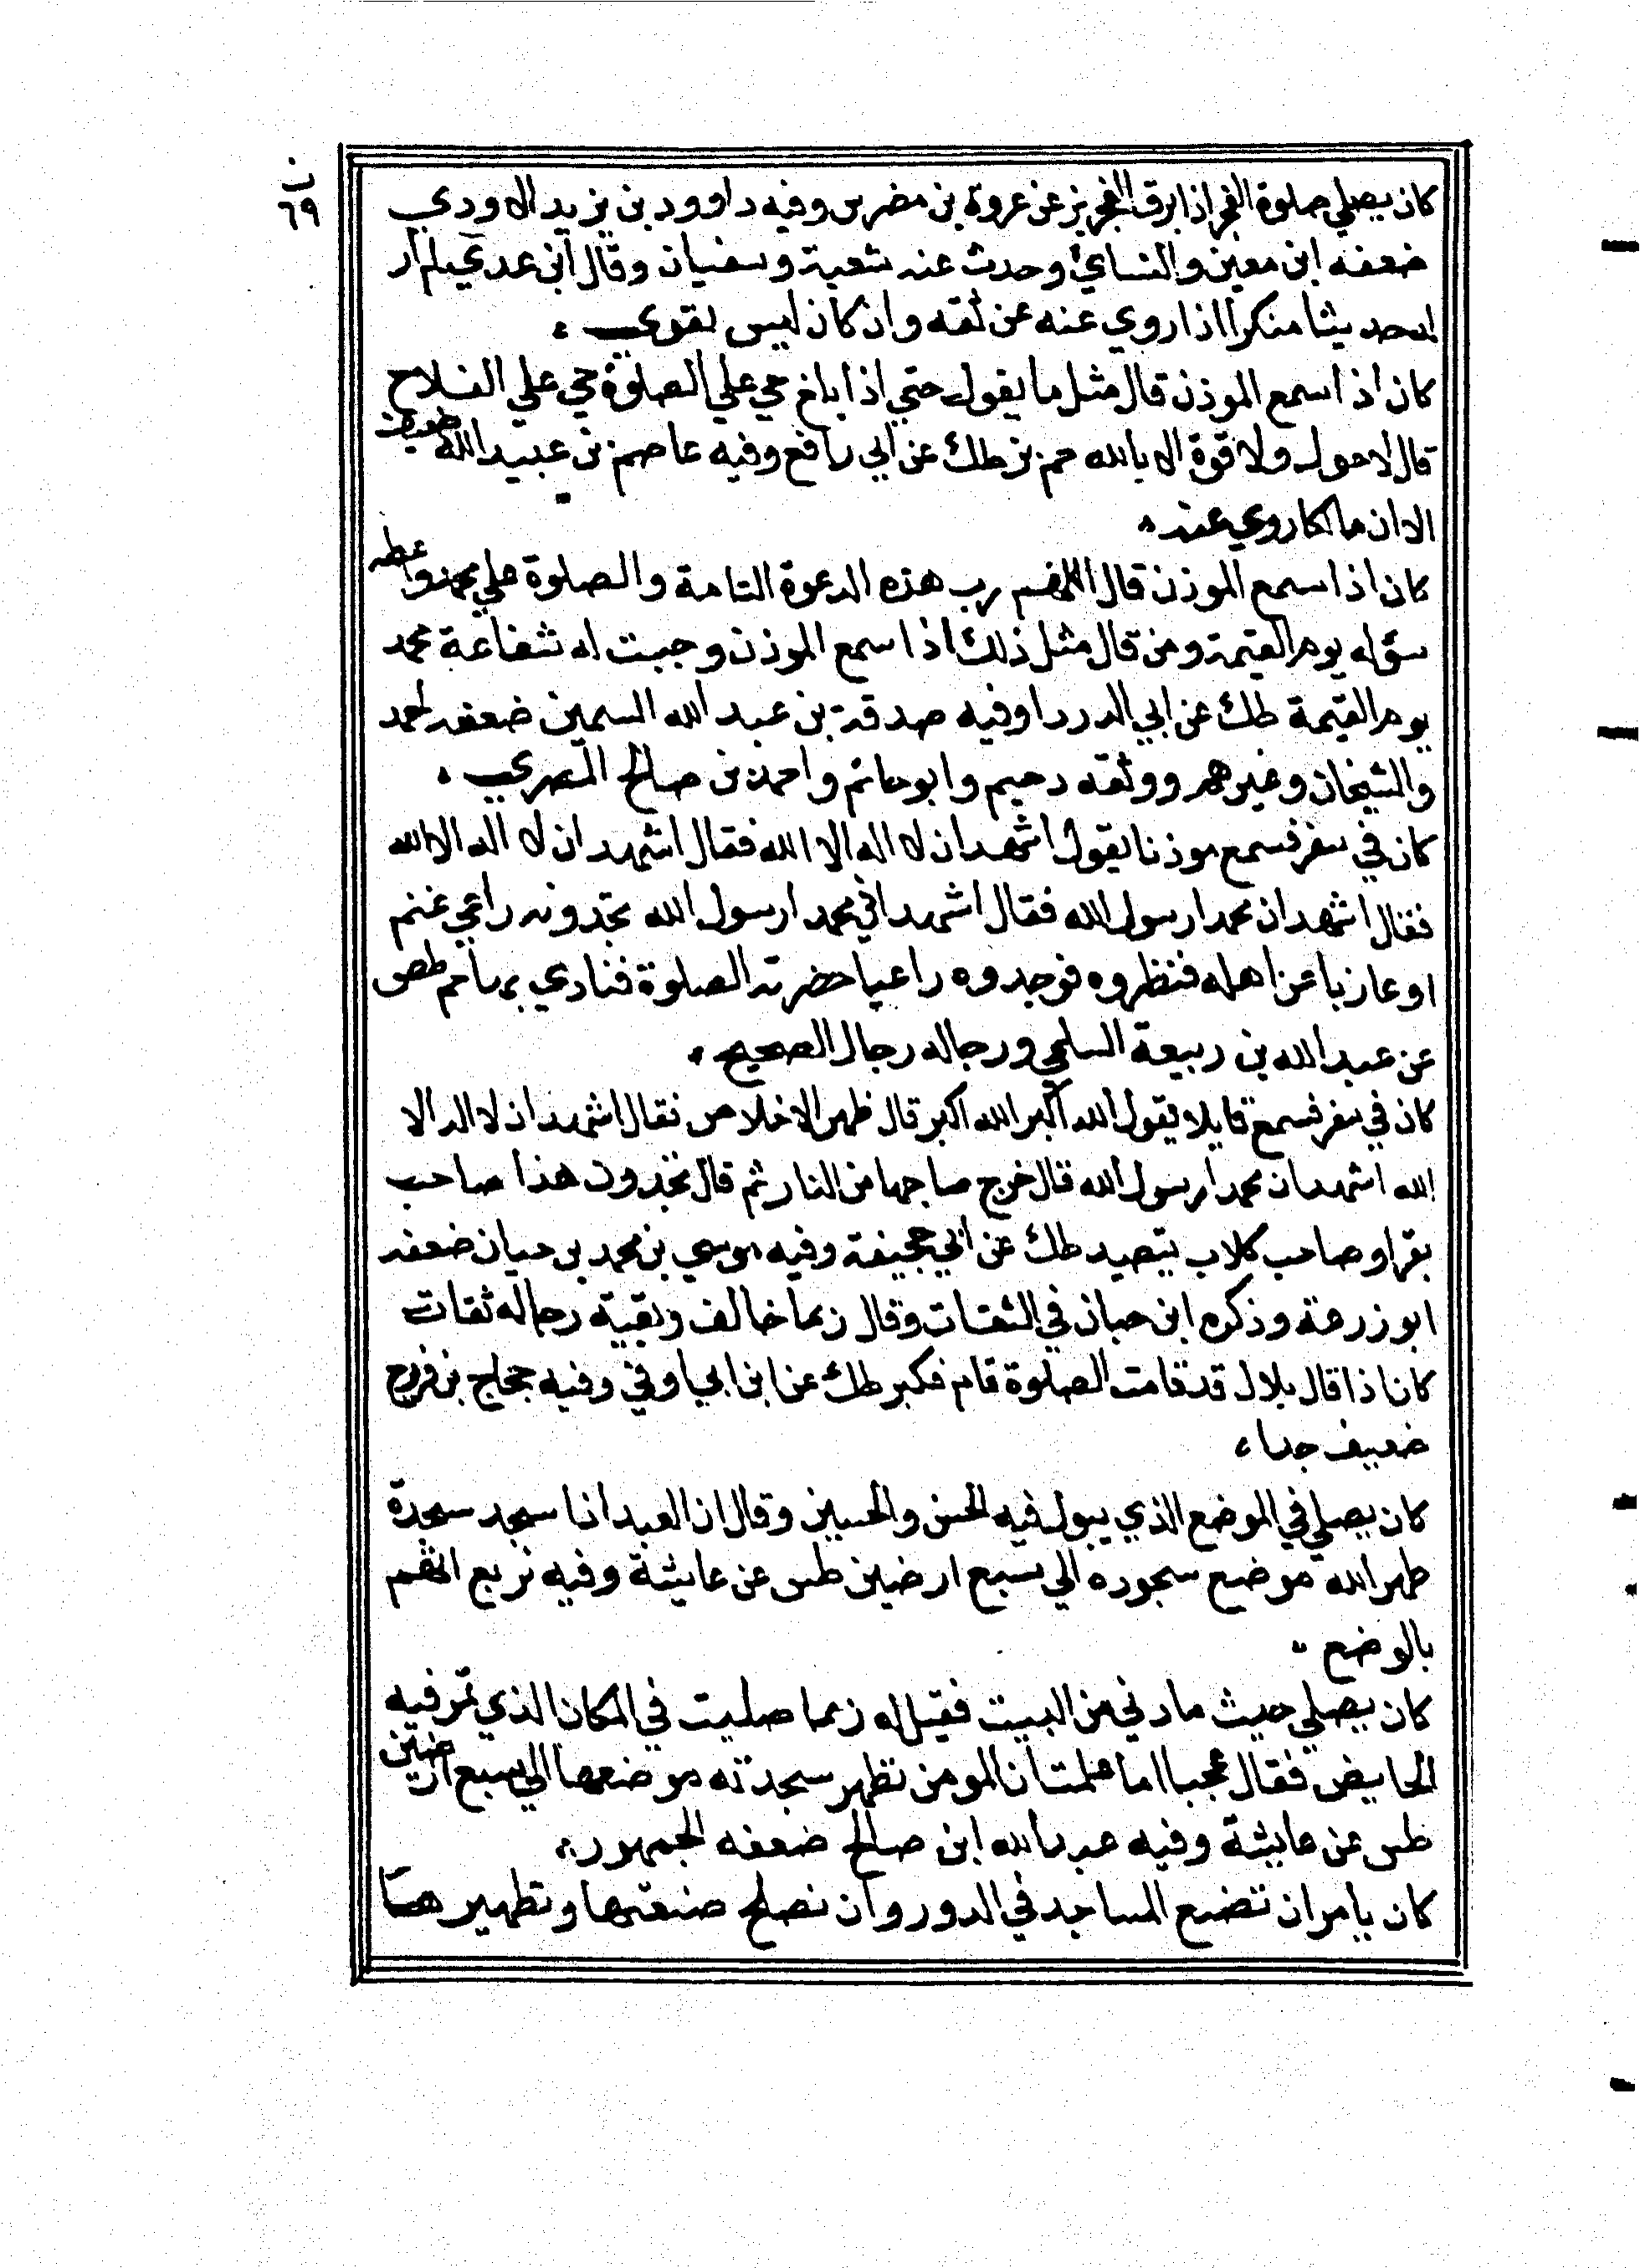 ب
٦٩
كان يصلي صلوة الفجر اذا برق الفجر بز عن عروة بن مضرس وفيه داوود بن يزيد الاودي
ضعفه ابن معين والنسائ وحدث عنه شعبة وسفيان وقال ابن عدي لم ار
له حديثا منكرا اذا روي عنه عن ثقه وان كان ليس بقوي
كان اذا سمع الموذن قال مثل ما يقول حتي اذا بلغ حي علي الصلوة حي علي الفلاح
قال لا حول ولا قوة الا بالله حم بز طك عن ابي رافع وفيه عاصم بن عبيد الله ضعيف
الا ان مالكا روي عنه
كان اذا سمع الموذن قال اللهم رب هذه الدعوة التامة والصلوة صلي علي محمد واعطه
سؤله يوم القيمة ومن قال مثل ذلك اذا سمع الموذن وجبت له شفاعة محمد
يوم القيمة طك عن ابي الدردا وفيه صدقة بن عبد الله السمين ضعفه احمد
والشيخان وغيرهم ووثقه دحيم وابو حاتم واحمد بن صالح المصري
كان في سفر فسمع موذنا يقول اشهد ان لا اله الا الله فقال اشهد ان لا اله الا الله
فقال اشهد ان محمدا رسول الله فقال اشهد اني محمدا رسول الله تجدونه راعي غنم
او عازبا عن اهله فنظروه فوجدوه راعيا حضرته الصلوة فنادي بها حم طص
عن عبد الله بن ربيعة السلمي ورجاله رجال الصحيح
كان في سفر فسمع قايلا يقول الله اكبر الله اكبر قال ظهر الاخلاص فقال اشهد ان لا اله الا
الله اشهد ان محمدا رسول الله قال خرج صاحبها من النار ثم قال تجدون هذا صاحب
بقر او صاحب كلاب يتصيد طك عن ابي جحيفة وفيه موسي بن محمد بن حيان ضعفه
ابو زرعة وذكره ابن حبان في الثقات وقال ربما خالف وبقية رجاله ثقات
كان اذا قال بلال قد قامت الصلوة قام فكبر طك عن ابن ابي اوفي وفيه حجاج بن فروخ
ضعيف جدا
كان يصلي في الموضع الذي يبول فيه الحسن والحسين وقال ان العبد اذا سجد سجدة
طهر الله موضع سجوده الي سبع ارضين طس عن عايشة وفيه بزيع اتهم
بالوضع
كان يصلي حيث ما دني من البيت فقيل له ربما صليت في المكان الذي تمر فيه
الحايض فقال عجبا اما علمت ان المومن تطهر سجدته موضعها الي سبع ارضين
طس عن عايشة وفيه عبد الله ابن صالح ضعفه الجمهور
كان يامر ان تضع المساجد في الدور وان نصلح صنعتها وتطهيرها